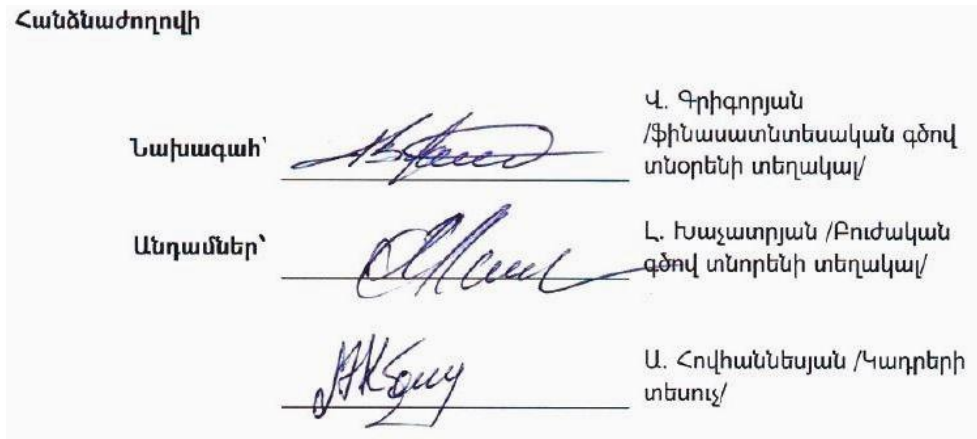 Հանձնաժողովի
Նախագահ՝
Վ. Գրիգորյան
/ֆինասատնտեսական գծով
տնօրենի տեղակալ/
Անդամներ՝
Լ. Խաչատրյան /Բուժական
գծով տնորենի տեղակալ/
Ա. Հովհաննեսյան /Կադրերի
տեսուչ/